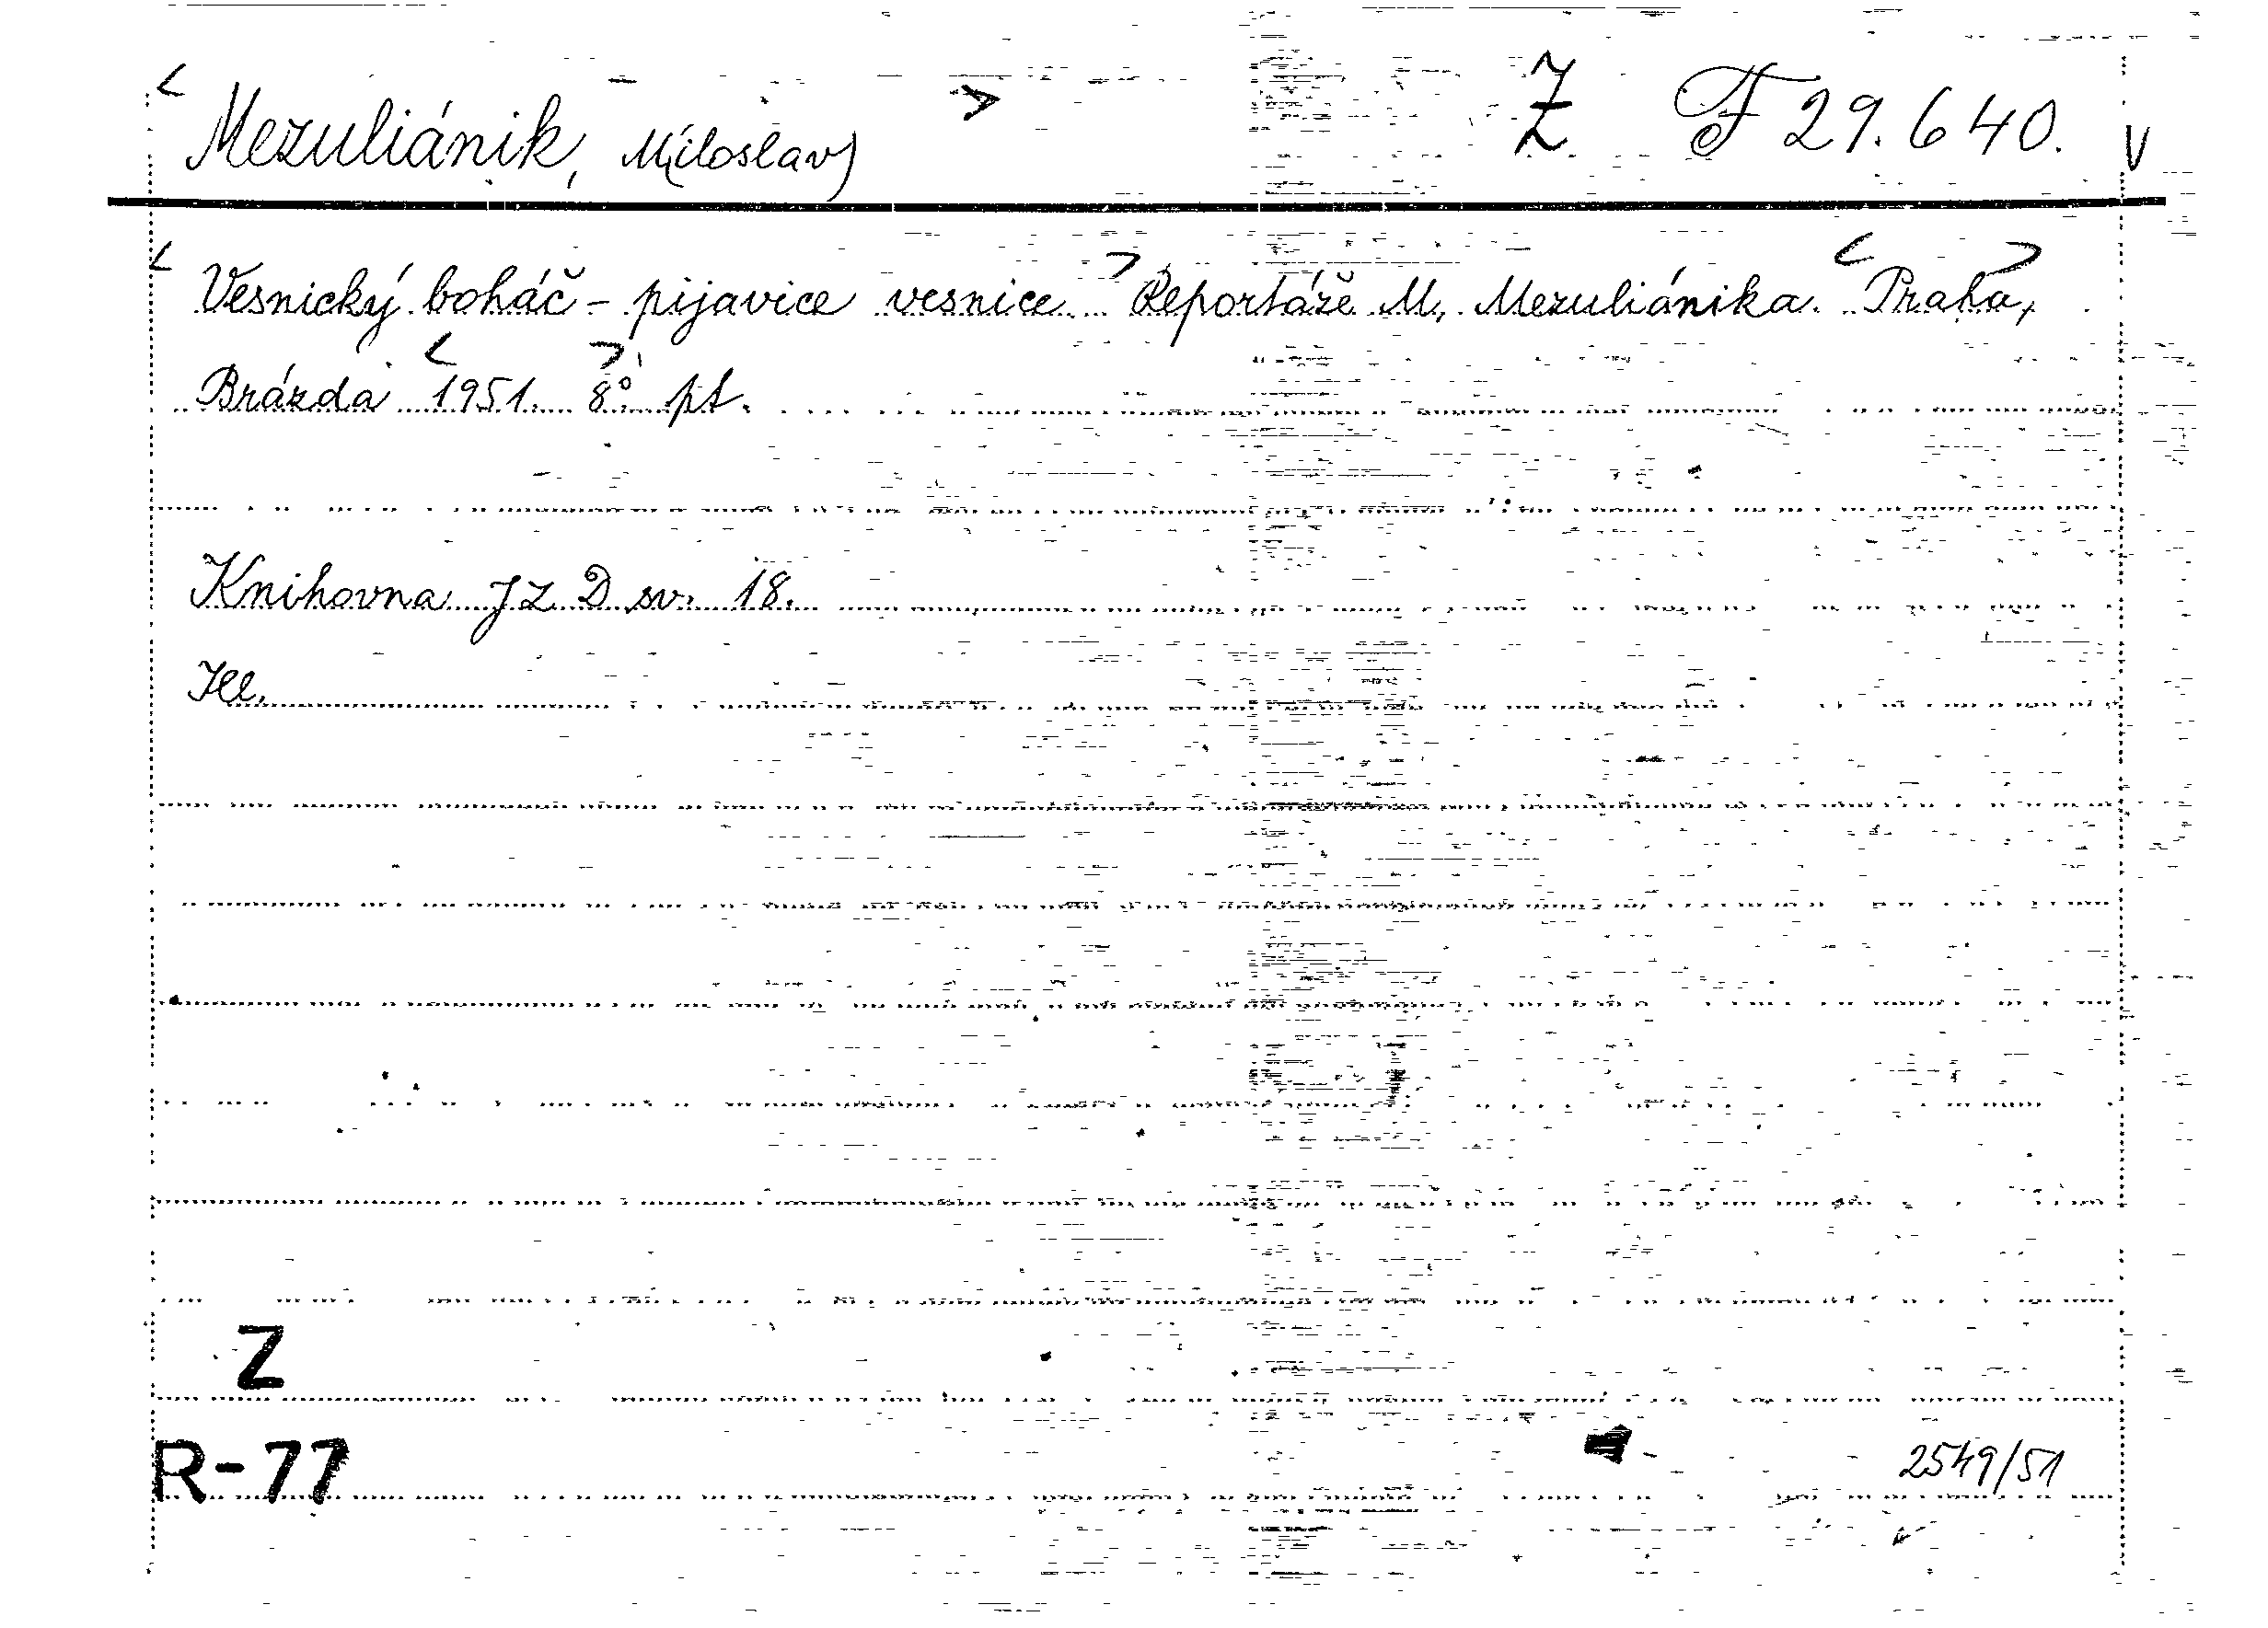 < Mezuliánik, Miloslav > Z F 29.640. V
< Vesnický boháč - pijavice vesnice > Reportáže M. Mezuliánika. < Praha, >
Brázda < 1951. > 8° pt.
Knihovna JZD sv. 18.
Ill.
Z
R-77
2549/51